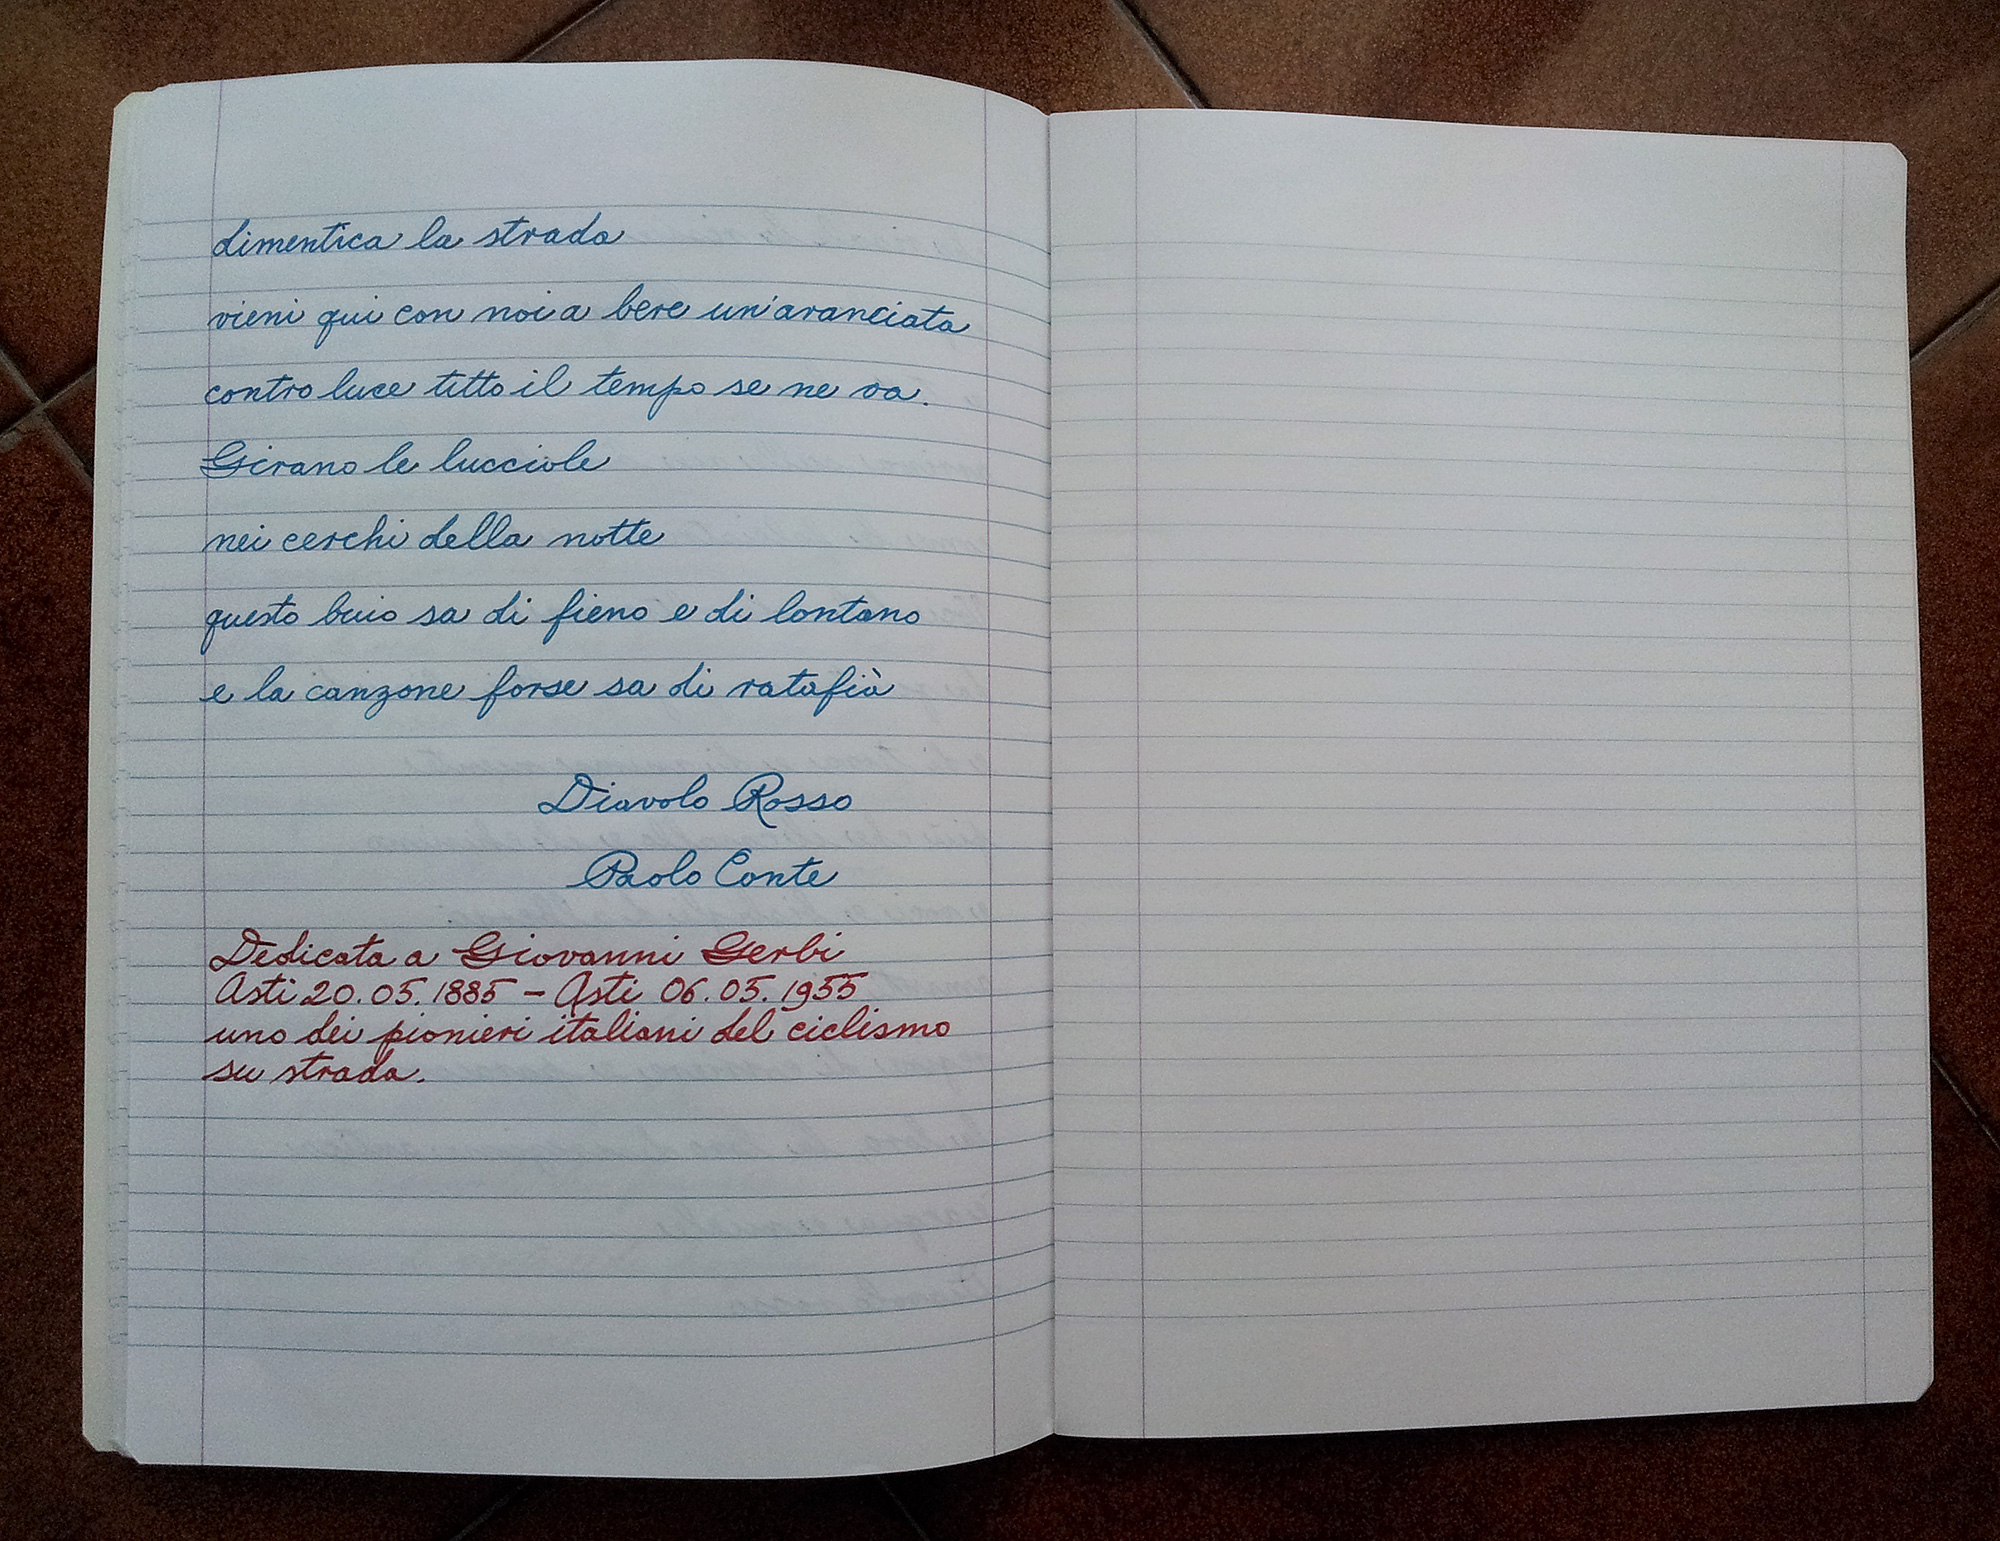 dimentica la strada
vieni qui con noi a bere un'aranciata
contro luce titto il tempo se ne va.
Girano le lucciole
nei cerchi della notte
questo buio sa di fieno e di lontano
e la canzone forse sa di ratafià
Diavolo Rosso
Paolo Conte
Dedicata a Giovanni Gerbi
Asti 20.05.1885 – Asti 06.05.1955
uno dei pionieri italiani del ciclismo
su strada.